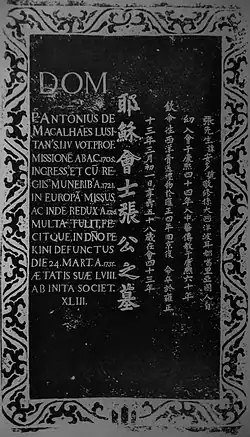 DOM
P. ANTONIUS DE
MAGALHAES LUSI
TAN'S.I.IV VOT. PROF.
MISSIONĒ AB A.C. 1705.
INGRESS', ET CŪ RE
GIIS MUNERIB' A. 1721.
IN EUROPĀ MISSUS,
AC INDE REDUX A. 1726.
MULTA TULIT, FE
CITQUE, IN DÑO PE
KINI DEFUNCTUS
DIE 24. MART. A. 1735.
ÆTATIS SUÆ LVIII.
AB INITA SOCIET.
XLIII.
耶穌會士張公之墓
張先生諱安多號敬修係大西洋波耳都噶里亞國人自
幼入會于康熙四十四年入中華傳教于康熙六十年
欽命往西洋齎送禮物於雍正四年回京復命卒於雍正
十三年三月初一日享壽五十八歲在會四十三年